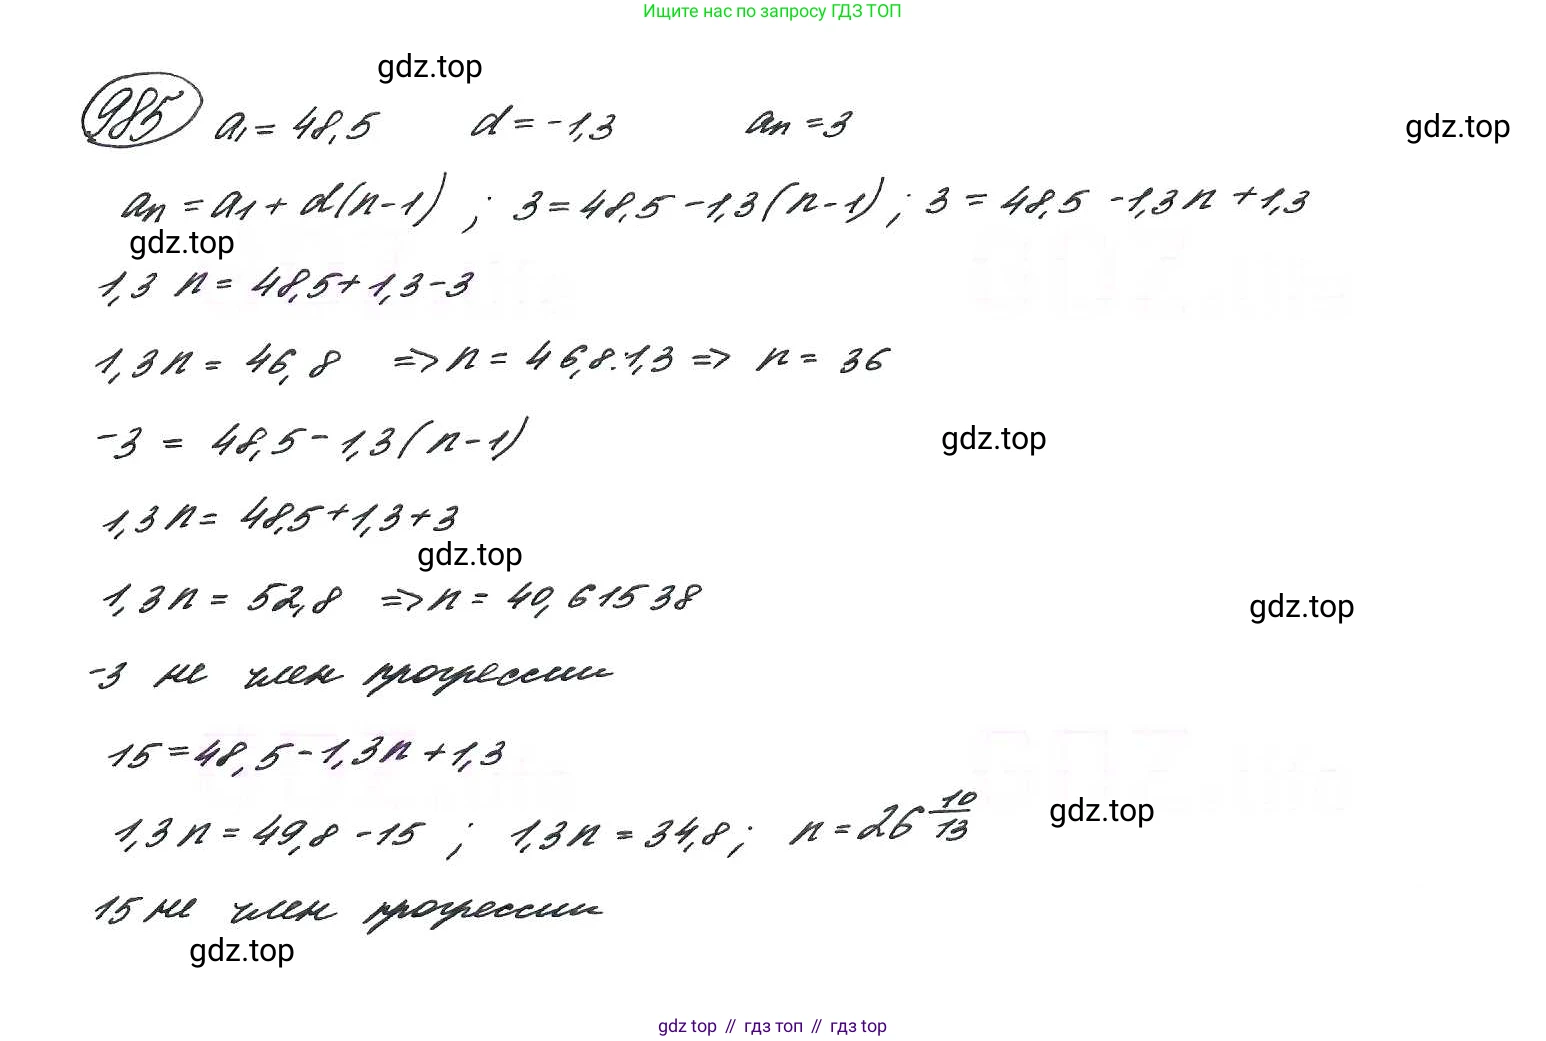 Ищите нас по запросу ГДЗ ТОП
gdz.top
985 a₁ = 48,5 d = -1,3 aₙ = 3
gdz.top
aₙ = a₁ + d(n-1) ; 3 = 48,5 - 1,3(n-1) ; 3 = 48,5 - 1,3n + 1,3
gdz.top
1,3 n = 48,5 + 1,3 - 3
1,3n = 46,8 => n = 46,8:1,3 => n = 36
-3 = 48,5 - 1,3(n-1)
gdz.top
1,3n = 48,5 + 1,3 + 3
gdz.top
1,3n = 52,8 => n = 40,61538
gdz.top
-3 не член прогрессии
15 = 48,5 - 1,3n + 1,3
1,3n = 49,8 - 15 ; 1,3n = 34,8 ; n = 26 10/13
gdz.top
15 не член прогрессии
gdz.top
gdz top // гдз топ // гдз top